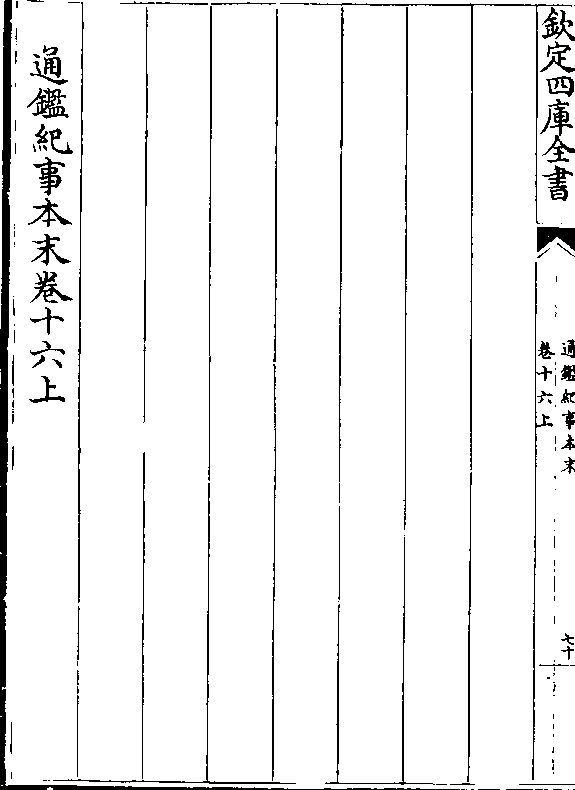 欽定四庫全書
通鑑紀事本末
卷十六上
七十
通鑑紀事本末卷十六上